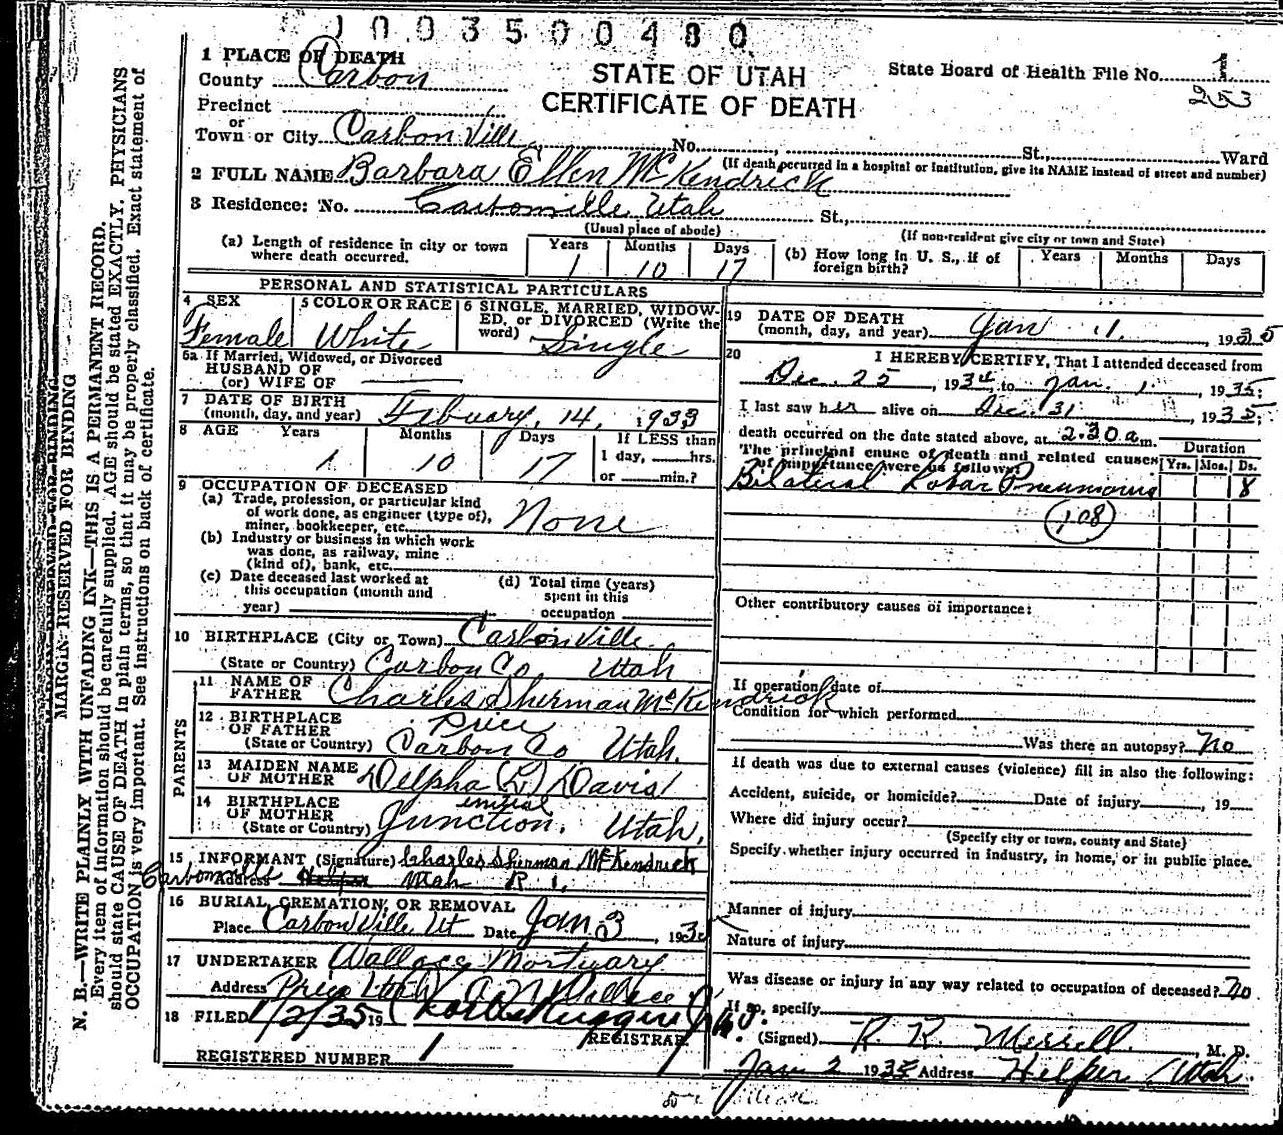 1003500480
1 PLACE OF DEATH
County Carbon
STATE OF UTAH
CERTIFICATE OF DEATH
State Board of Health File No. 1
253
Precinct
or
Town or City Carbonville No. St., Ward
(If death occurred in a hospital or institution, give its NAME instead of street and number)
2 FULL NAME Barbara Ellen McKendrick
3 Residence: No. Carbonville, Utah St.,
(Usual place of abode) (If non-resident give city or town and State)
(a) Length of residence in city or town where death occurred. Years 1 Months 10 Days 17
(b) How long in U. S., if of foreign birth? Years Months Days
PERSONAL AND STATISTICAL PARTICULARS
4 SEX Female
5 COLOR OR RACE White
6 SINGLE, MARRIED, WIDOWED, or DIVORCED (Write the word) Single
6a If Married, Widowed, or Divorced
HUSBAND OF
(or) WIFE OF
7 DATE OF BIRTH
(month, day, and year) February, 14, 1933
8 AGE Years 1 Months 10 Days 17 If LESS than 1 day, hrs. or min.?
9 OCCUPATION OF DECEASED
(a) Trade, profession, or particular kind of work done, as engineer (type of), miner, bookkeeper, etc. None
(b) Industry or business in which work was done, as railway, mine (kind of), bank, etc.
(c) Date deceased last worked at this occupation (month and year)
(d) Total time (years) spent in this occupation
10 BIRTHPLACE (City or Town) Carbonville
(State or Country) Carbon Co Utah
PARENTS
11 NAME OF FATHER Charles Sherman McKendrick
12 BIRTHPLACE OF FATHER Price
(State or Country) Carbon Co Utah.
13 MAIDEN NAME OF MOTHER Delpha (L) Davis
initial
14 BIRTHPLACE OF MOTHER
(State or Country) Junction, Utah,
15 INFORMANT (Signature) Charles Sherman McKendrick
Carbonville Address Helper Utah R 1.
16 BURIAL, CREMATION, OR REMOVAL
Place Carbonville, Ut Date Jan 3, 1935
17 UNDERTAKER Wallace Mortuary
Address Price Utah
18 FILED 1/2/35 19
REGISTRAR
REGISTERED NUMBER 1
19 DATE OF DEATH
(month, day, and year) Jan 1, 1935
20 I HEREBY CERTIFY, That I attended deceased from
Dec. 25, 1934 to Jan. 1, 1935.
I last saw her alive on Dec. 31, 1935,
death occurred on the date stated above, at 2.30 a m.
The principal cause of death and related causes of importance were as follows:
Duration
Yrs. Mos. Ds.
Bilateral Lobar Pneumonia 8
108
Other contributory causes of importance:
If operation, date of
Condition for which performed
Was there an autopsy? No
If death was due to external causes (violence) fill in also the following:
Accident, suicide, or homicide? Date of injury , 19
Where did injury occur?
(Specify city or town, county and State)
Specify whether injury occurred in industry, in home, or in public place.
Manner of injury
Nature of injury
Was disease or injury in any way related to occupation of deceased? No
If so, specify
(Signed) R. R. Merrell, M. D.
Jan 2 1935 Address Helper, Utah.
MARGIN RESERVED FOR BINDING
N. B.—WRITE PLAINLY WITH UNFADING INK—THIS IS A PERMANENT RECORD.
Every item of information should be carefully supplied. AGE should be stated EXACTLY. PHYSICIANS
should state CAUSE OF DEATH in plain terms, so that it may be properly classified. Exact statement of
OCCUPATION is very important. See instructions on back of certificate.